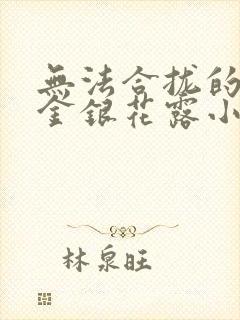 無法合拢的
金銀花露小
林泉旺